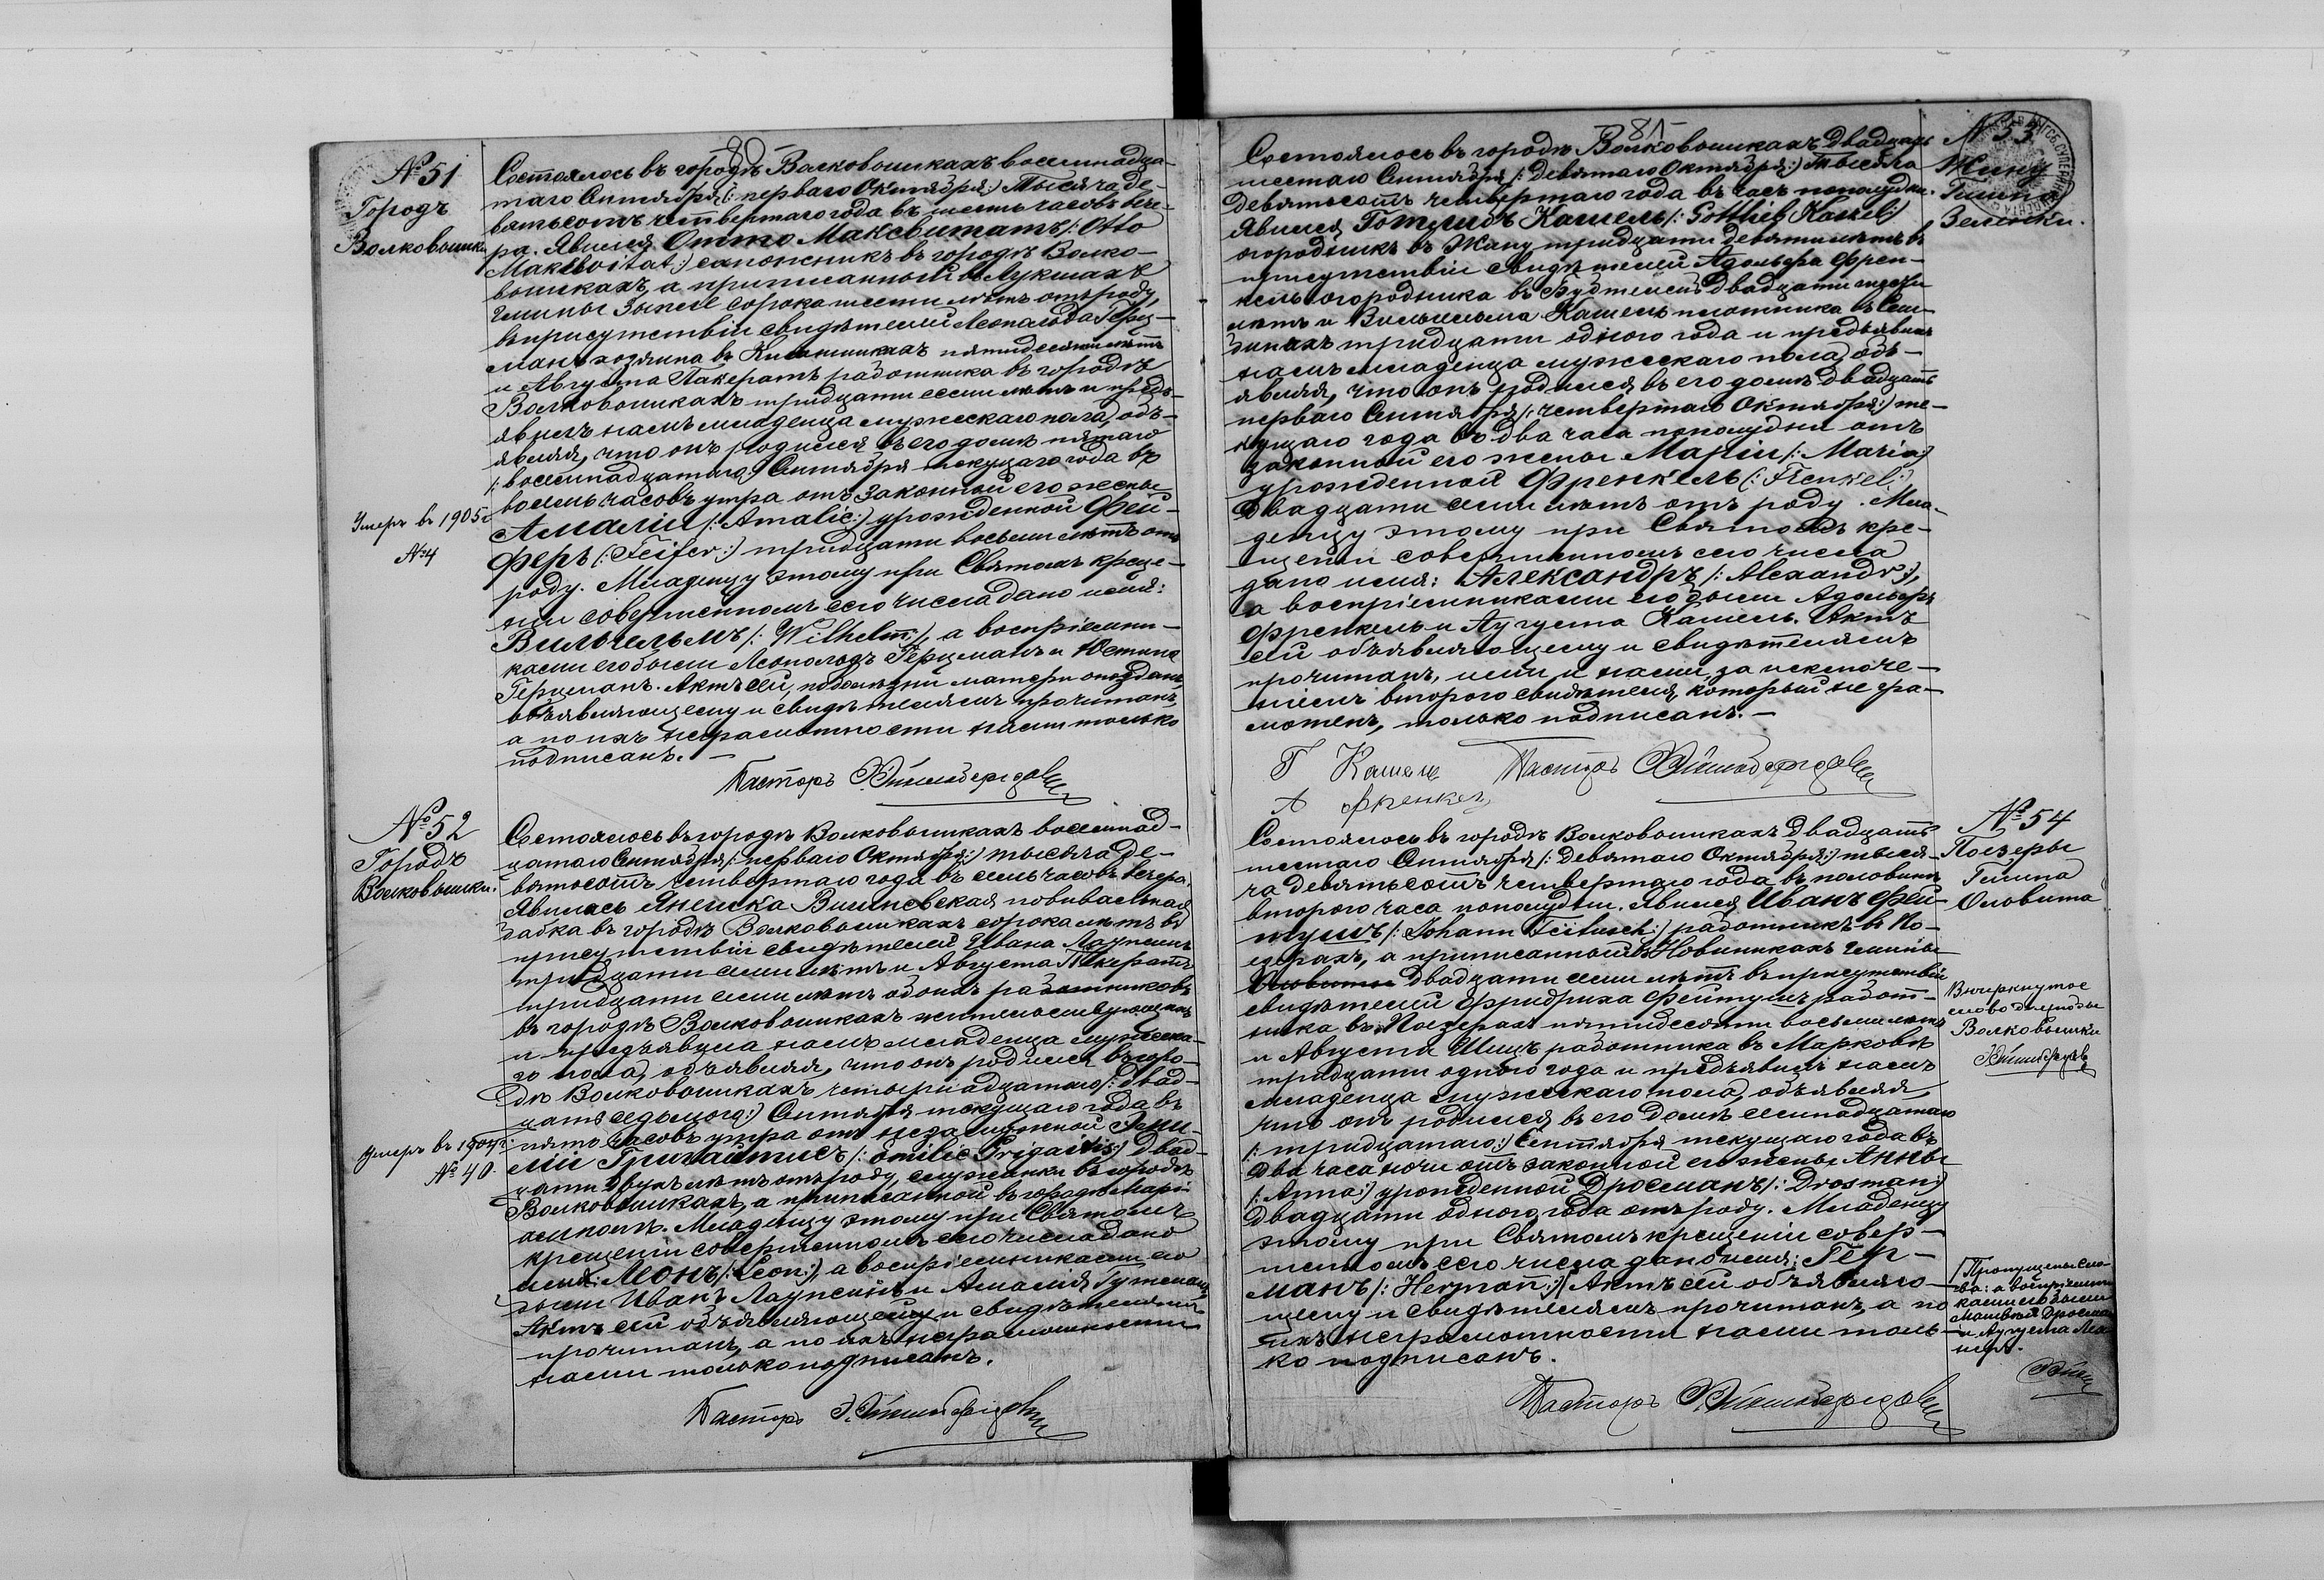 80
№ 51
Городъ
Волковышки
Состоялось въ городѣ Волковышкахъ восемнадца-
таго Сентября /: перваго Октября :/ тысяча де-
вятьсотъ четвертаго года въ шесть часовъ вече-
ра. Явился Отто Максвитатъ /: Otto
Makswitat :/ сапожникъ въ городѣ Волко-
вышкахъ, а приписанный въ Лукшахъ
гмины Зыпле сорока шести лѣтъ отъ роду,
въ присутствіи свидѣтелей Леопольда Герц-
манъ хозяина въ пятидесяти лѣтъ
и Августа Пакератъ работника въ городѣ
Волковышкахъ тридцати семи лѣтъ и предъ-
явилъ намъ младенца мужескаго пола, объ-
являя, что онъ родился въ его домѣ пятаго
/: восемнадцатаго :/ Сентября текущаго года въ
восемь часовъ утра отъ законной его жены
Амаліи /: Amalie :/ урожденной Фей-
феръ /: Feifer :/ тридцати восьми лѣтъ отъ
роду. Младенцу этому при Святомъ креще-
ніи совершенномъ сего числа дано имя:
Вильгельмъ /: Wilhelm :/, а воспріемни-
ками его были Леопольдъ Герцманъ и Юстина
Герцманъ. Актъ сей, по болѣзни матери опозданъ,
объявляющему и свидѣтелямъ прочитанъ,
а по ихъ неграмотности нами только
подписанъ. —
Пасторъ
Умеръ въ 1905 г
№ 4
№ 52
Городъ
Волковышки.
Состоялось въ городѣ Волковышкахъ восемнад-
цатаго Сентября /: перваго Октября :/ тысяча де-
вятьсотъ четвертаго года въ семь часовъ вечера.
Явилась Анешка Вишневская повивальная
бабка въ городѣ Волковышкахъ сорока лѣтъ въ
присутствіи свидѣтелей Ивана Лаупсинъ
тридцати семи лѣтъ и Августа Пакератъ
тридцати семи лѣтъ обоихъ работниковъ
въ городѣ Волковышкахъ жительствующихъ
и предъявила намъ младенца мужеска-
го пола, объявляя, что онъ родился въ горо-
дѣ Волковышкахъ четырнадцатаго /: двад-
цать седьмого :/ Сентября текущаго года въ
пять часовъ утра отъ незамужной Эми-
ліи Григайтисъ /: Emilie Grigaitis :/ двад-
цати двухъ лѣтъ отъ роду, служанки въ городѣ
Волковышкахъ, а приписанной въ городѣ Марі-
амполь. Младенцу этому при Святомъ
крещеніи совершенномъ сего числа дано
имя: Леонъ /: Leon :/, а воспріемниками его
были Иванъ Лаупсинъ и Амалія Гутманъ.
Актъ сей объявляющему и свидѣтелямъ
прочитанъ, а по ихъ неграмотности
нами только подписанъ.
Пасторъ
Умеръ въ 1904 г.
№ 40.
81
№ 53
Жину
Гмины
Зеленки.
Состоялось въ городѣ Волковышкахъ двадцать
шестаго Сентября /: девятаго Октября :/ тысяча
девятьсотъ четвертаго года въ часъ пополудни.
Явился Готлибъ Кашель /: Gottlieb Kaschel :/
огородникъ въ Жану тридцати девяти лѣтъ въ
присутствіи свидѣтелей Адольфа Френ-
кель огородника въ двадцати трехъ
лѣтъ и Вильгельма Кашель плотника въ
тридцати одного года и предъявилъ
намъ младенца мужескаго пола, объ-
являя, что онъ родился въ его домѣ двадцать
перваго Сентября /: четвертаго Октября :/ те-
кущаго года въ два часа пополудни отъ
законной его жены Маріи /: Maria :/
урожденной Френкель /: Frenkel :/
двадцати семи лѣтъ отъ роду. Мла-
денцу этому при Святомъ кре-
щеніи совершенномъ сего числа
дано имя: Александръ /: Alexandr :/,
а воспріемниками его были Адольфъ
Френкель и Августа Кашель. Актъ
сей объявляющему и свидѣтелямъ
прочитанъ, ими и нами, за исключе-
ніемъ второго свидѣтеля, который не гра-
мотенъ, только подписанъ. —
Г Кашель
Пасторъ
А Френкель
№ 54
Поезеры
Гмина
Оловита
Состоялось въ городѣ Волковышкахъ двадцать
шестаго Сентября /: девятаго Октября :/ тыся-
ча девятьсотъ четвертаго года въ половинѣ
второго часа пополудни. Явился Иванъ Фей-
тушъ /: Johann Feitusch :/ работникъ въ По-
езерахъ, а приписанный въ Новиникахъ гмины
двадцати семи лѣтъ въ присутствіи
свидѣтелей Фридриха Фейтушъ работ-
ника въ Поезерахъ пятидесяти восьми лѣтъ
и Августа Шицъ работника въ Марковѣ
тридцати одного года и предъявилъ намъ
младенца мужескаго пола, объявляя
что онъ родился въ его домѣ семнадцатаго
/: тридцатаго :/ Сентября текущаго года въ
два часа ночи отъ законной его жены Анны
/: Anna :/ урожденной Дросманъ /: Drosman :/
двадцати одного года отъ роду. Младенцу
этому при Святомъ крещеніи совер-
шенномъ сего числа дано имя: Гер-
манъ /: Herman :/ Актъ сей объявляю-
щему и свидѣтелямъ прочитанъ, а по
ихъ неграмотности нами толь-
ко подписанъ.
Пасторъ
Вычеркнутое
слово
Волковышки
/ Пропущены сло-
ва: а воспріемни-
ками его были
Дросман
и Августа